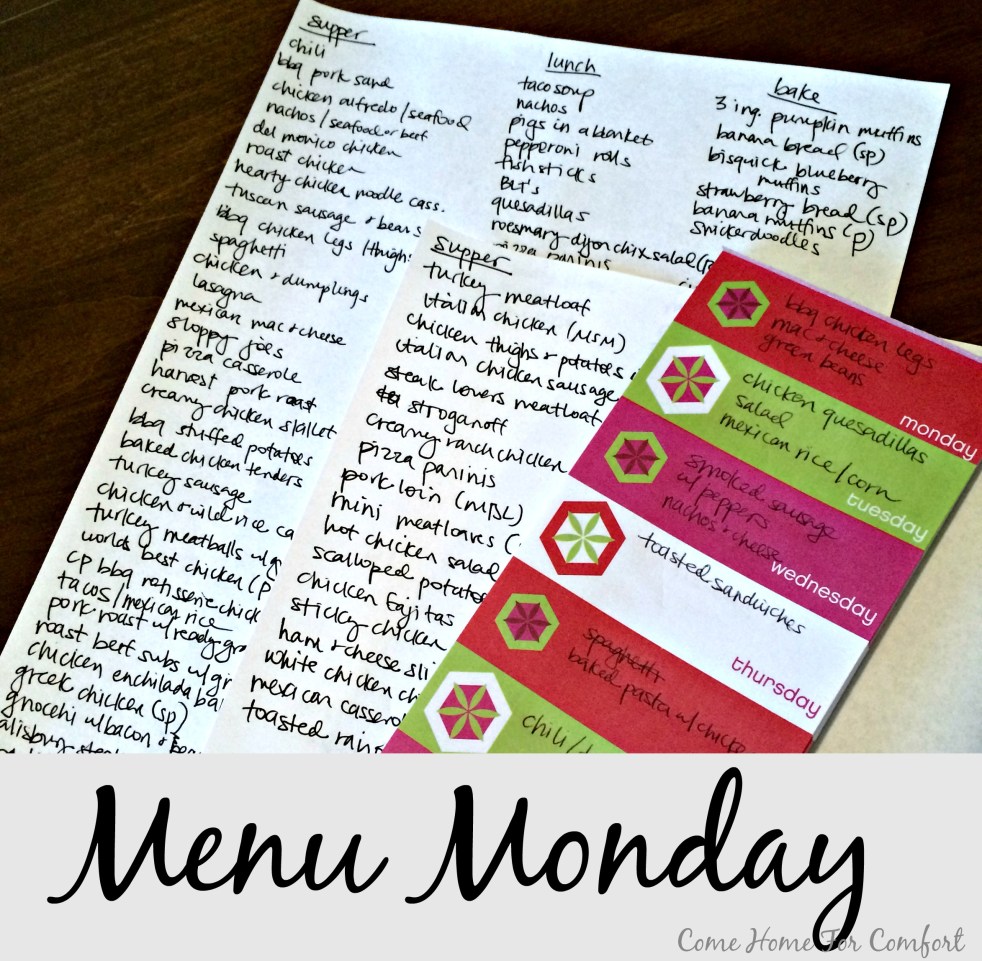 supper
chili
bbq pork sand
chicken alfredo/seafood
nachos/seafood or beef
del monico chicken
roast chicken
hearty chicken noodle cass.
tuscan sausage + beans
bbq chicken legs/thighs
spaghetti
chicken + dumplings
lasagna
mexican mac + cheese
sloppy joes
pizza casserole
harvest pork roast
creamy chicken skillet
bbq stuffed potatoes
baked chicken tenders
turkey sausage
chicken + wild rice ca
turkey meatballs w/
worlds best chicken (
cp bbq rotisserie chick
tacos/mexican rice
pork roast w/ ready
roast beef subs w/
chicken enchilada ba
greek chicken (sp)
gnocchi w/ bacon +
lunch
taco soup
nachos
pigs in a blanket
pepperoni rolls
fish sticks
BLT's
quesadillas
rosemary dijon chix salad
pizza paninis
bake
3 ing. pumpkin muffins
banana bread (sp)
bisquick blueberry
muffins
strawberry bread (sp)
banana muffins (p)
snickerdoodles
supper
turkey meatloaf
italian chicken (MSM)
chicken thighs + potatoes
italian chicken sausage
steak lovers meatloaf
stroganoff
creamy ranch chicken
pizza paninis
pork loin (MBL)
mini meatloaves (
hot chicken salad
scalloped potatoe
chicken fajitas
sticky chicken
ham + cheese sli
white chicken chi
mexican cassero
toasted
bbq chicken legs
mac + cheese
green beans
monday
chicken quesadillas
salad
mexican rice/corn
tuesday
smoked sausage
w/ peppers
nachos + cheese
wednesday
toasted sandwiches
thursday
spaghetti
baked pasta w/ chicke
chili/
Menu Monday
Come Home For Comfort